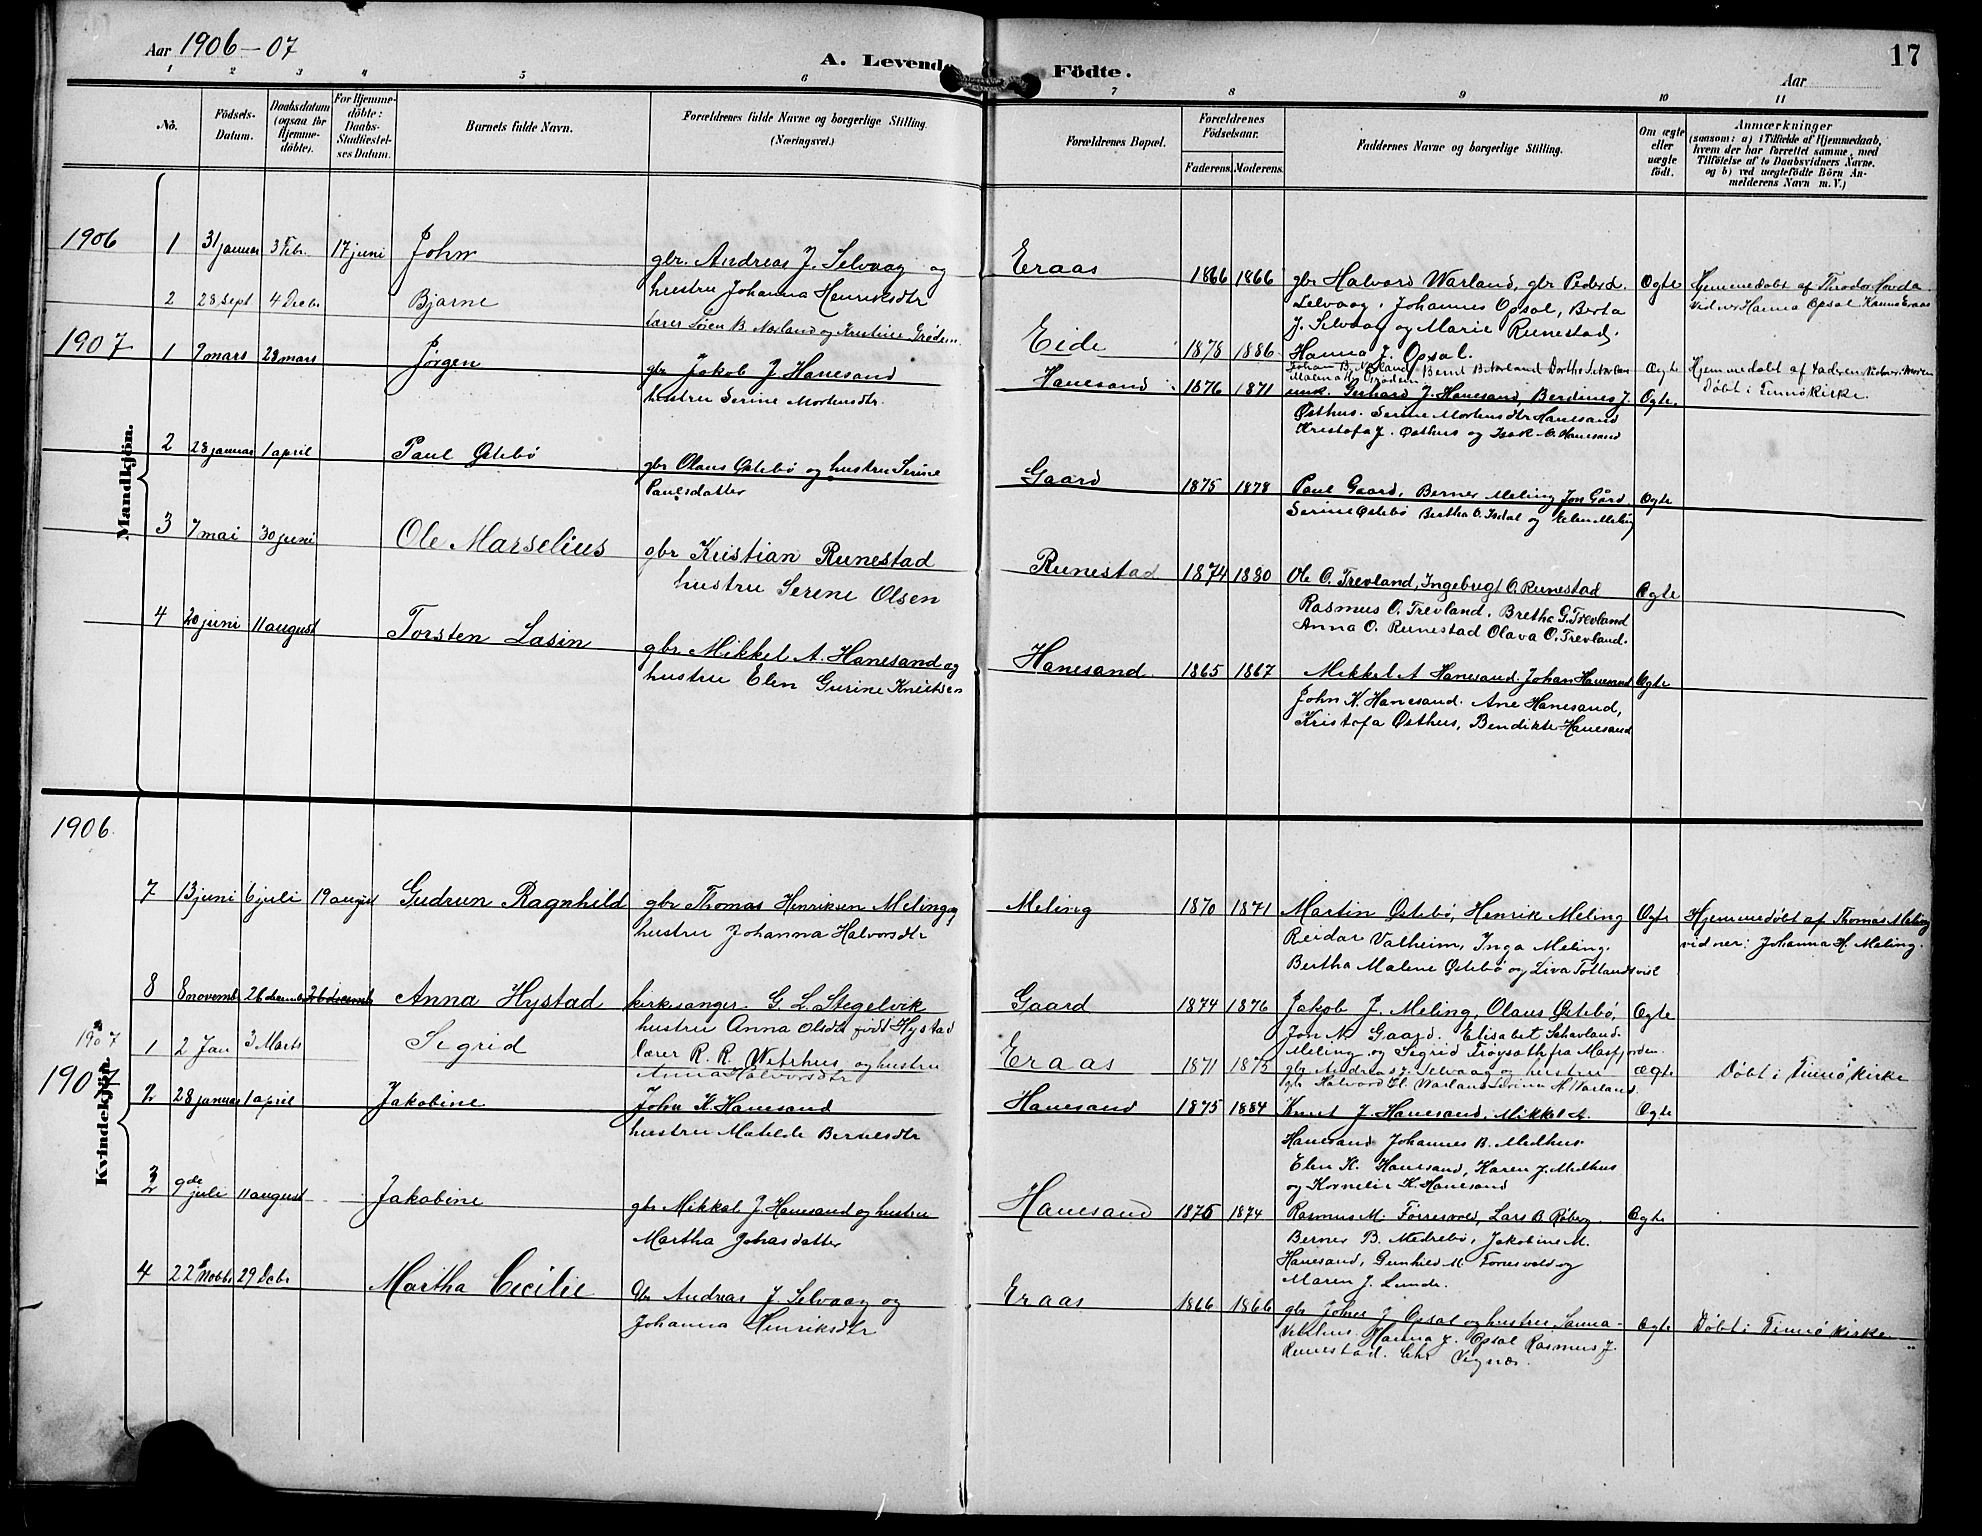 Aar 1906-07
A. Levende Födte.
17
Aar
1 2 3 4 5 6 7 8 9 10 11
No.
Födsels-
Datum.
Daabsdatum
(ogsaa for
Hjemme-
döbte).
For Hjemme-
döbte:
Daabs-
Stadfæstel-
ses Datum.
Barnets fulde Navn.
Forældrenes fulde Navne og borgerlige Stilling.
(Næringsvei.)
Forældrenes Bopæl.
Forældrenes
Födselsaar.
Faderens. Moderens.
Faddernes Navne og borgerlige Stilling.
Om ægte
eller
uægte
födt.
Anmærkninger
(saasom: a) i Tilfælde af Hjemmedaab,
hvem der har forrettet samme, med
Tilföielse af to Daabsvidners Navne,
og b) ved uægtefödte Börn An-
melderens Navn m. V.)
Mandkjön.
1906
1 31 januar 3 Febr. 17 juni John
gbr. Andreas J. Selvaag og
hustru Johanna Henriksdtr
Eraas 1866 1866
gbr Halvord Warland, gbr Peder d.
Selvaag, Johannes Opsal, Berta
J. Selvaag og Marie Runestad.
Hanna J. Opsal.
Ogte
Hjemmedøbt af Theodor Hovda
vidner Hanna Opsal Hanna Eraas
2 28 sept 4 Decbr Bjarne
lærer Søren B. Norland og Kristine
Eide 1878 1886
Johan B. Norland Bernt B. Norland Dorthe S. Norland
Ægte
Hjemmedøbt af faderen
Døbt i Finnø kirke.
1907
1 7 mars 28 mars Jørgen
gbr Jakob J. Hanesand
hustru Serine Mortensdtr.
Hanesand 1876 1871
umk. Gerhard J. Hanesand, Berdines J.
Østhus. Serine Mortensdtr Hanesand
Kristofa J. Østhus og Isak O. Hanesand
Ogte.
2 28 januar 1 april Paul Østebø
gbr Olaus Østebø og hustru Serine
Paulsdatter
Gaard 1875 1878
Paul Gaard, Berner Meling Jon Gård
Serine Østebø Bertha O. Isdal og Elen Meling
Ogte
3 7 mai 30 juni Ole Marselius
gbr Kristian Runestad
hustru Serene Olsen
Runestad 1874 1880
Ole O. Trevland, Ingebrugt O. Runestad
Rasmus O. Trevland, Bretha G. Trevland
Anna O. Runestad Olava O. Trevland.
Ogte
4 20 juni 11 august Torsten Lasin
gbr Mikkel A. Hanesand og
hustru Elen Gurine Knutsen
Hanesand. 1865 1867
Mikkel A Hanesand. Johan Hanesand
John K. Hanesand. Ane Hanesand,
Kristofa Østhus, Bendikte Hanesand
Ogte
Kvindekjön.
1906.
7 13 juni 6 juli 19 august Gudrun Ragnhild
gbr Thomas Henriksen Meling og
hustru Johanna Halvorsdtr
Meling 1870 1871
Martin Østebø, Henrik Meling
Reidar Valheim, Inga Meling.
Bertha Malene Østebø og Liva Tollandsvist
Ogte
Hjemmedøbt af Thomas Meling
vidner: Johanna H. Meling.
8 8 novemb 26 decemb 26 decemb Anna Hystad
kirkesanger G. L. Stegelvik
hustru Anna Olsdtr født Hystad
Gaard 1874 1876
Jakob J. Meling, Olaus Østebø,
Jon M. Gaard. Elisabet Schavland.
Meling og Sigrid Frøysath fra Masfjorden.
Ogte
1907
1 2 Jan 3 Marts Sigrid
lærer R. R. Vetrhus og hustru
Anna Halvorsdtr
Eraas 1871 1875
gbr Andreas J. Selvaag og hustru
gbr Halvord H. Warland Serine A. Warland
ægte
Døbt i Finnø kirke
1907
2 28 januar 1 april Jakobine
John K. Hanesand
hustru Matilde Bernesdtr
Hanesand 1875 1884
Knut J. Hanesand, Mikkel A.
Hanesand Johannes B. Medhus
Elen K. Hanesand, Karen J. Medhus
og Kornelie K. Hanesand
Ogte
3 9de juli 11 august Jakobine
gbr Mikkal J. Hanesand og hustru
Martha Johasdatter
Hanesand 1875 1874
Rasmus M. Førresvold, Lars B. Røberg.
Berner B. Medrebø, Jakobine M.
Hanesand, Gunhild M. Forresvold og
Maren J. Lunde.
Ogte
4 22 Novbr 29 Decbr Martha Cecilie
Gbr Andreas J. Selvaag og
Johanna Henriksdtr
Eraas 1866 1866
gbr Johns J. Opsal og hustru Sanna
Vetrhus. Hanna J. Opsal Rasmus J.
Runestad. Chr Vignæs.
Ogte
Døbt i Finnø kirke